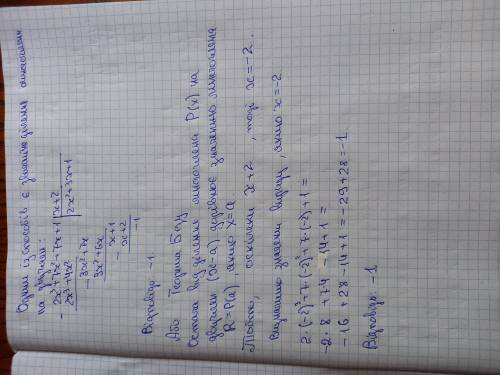 Одним із способів є звичайне ділення многочлена
на двочлен:
- 2x³+7x²+7x+1 | x+2
2x³+4x² | 2x²+3x+1
- 3x²+7x
3x²+6x
- x+1
x+2
-1
Відповідь: -1
Або Теорема Безу
Остача від ділення многочлена P(x) на
двочлен (x-a) дорівнює значенню многочлена
R=P(a), якщо x=a.
Тобто, оскільки x+2, тоді x=-2.
Визначаємо значення виразу, якщо x=-2
2·(-2)³+7·(-2)²+7·(-2)+1=
-2·8+7·4-14+1=
-16+28-14+1=-29+28=-1.
Відповідь: -1